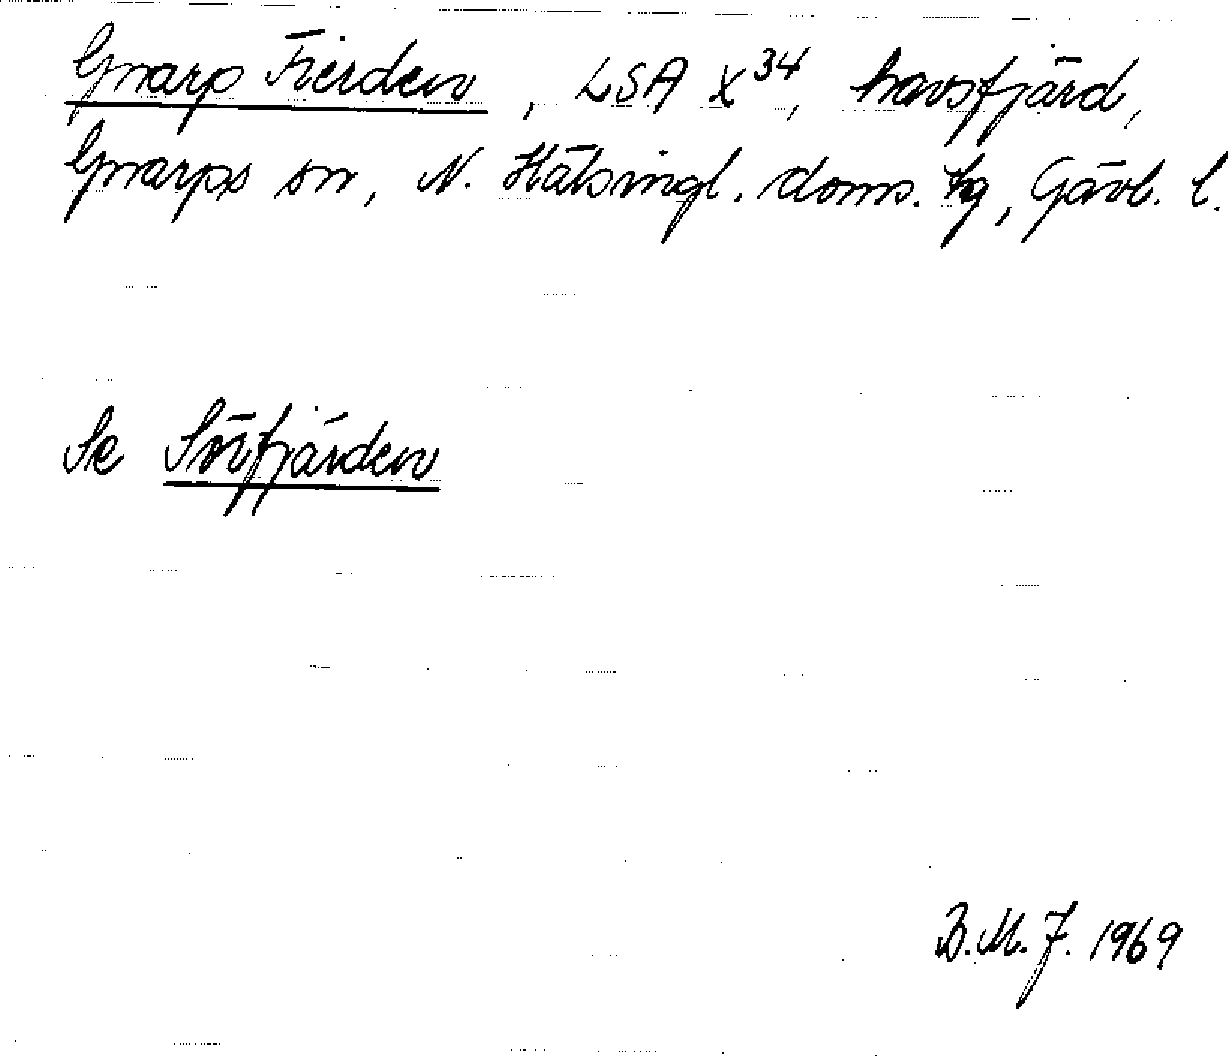 Gnarp Fierden, LSA X34, havsfjärd,
Gnarps sn, N. Hälsingl. doms. tg, Gävl. l.
Se Sörfjärden
B.M.J. 1969